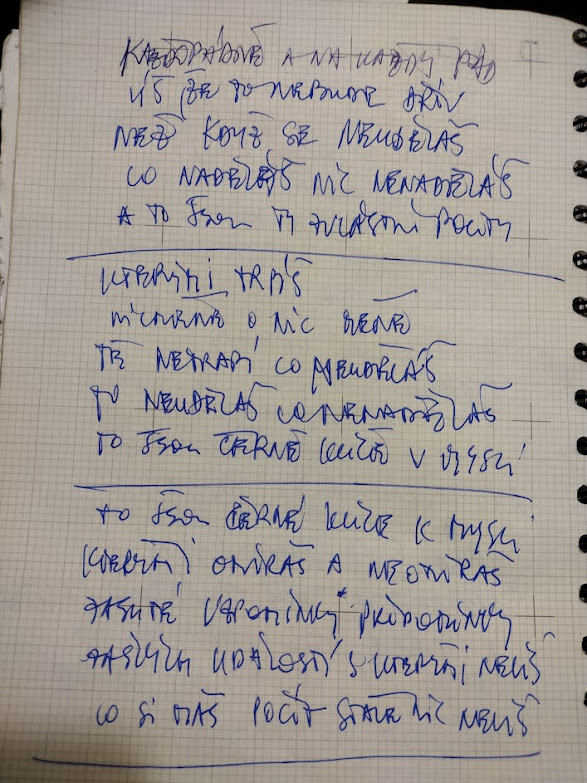 KAŽDOPÁDNĚ A NA KAŽDÝ PÁD
VÍŠ ŽE TO NEBUDE DŘÍV
NEŽ KDYŽ SE NEUDĚLÁŠ
CO NADĚLÁŠ NIC NENADĚLÁŠ
A TO JSOU TI ZVLÁŠTNÍ POCITY
KTERÝMI TRPÍŠ
NICMÉNĚ O NIC MÉNĚ
TĚ NETRÁPÍ CO NEUDĚLÁŠ
TO NEUDĚLÁŠ CO NENADĚLÁŠ
TO JSOU ČERNÉ KLÍČE V MYSLI
TO JSOU ČERNÉ KLÍČE K MYSLI
KTERÝMI OTVÍRÁŠ A NEOTVÍRÁŠ
ZASUTÉ VZPOMÍNKY* PŘIPOMÍNKY
ZAŠLÝCH UDÁLOSTÍ S KTERÝMI NEVÍŠ
CO SI MÁŠ POČÍT STÁLE NIC NEVÍŠ